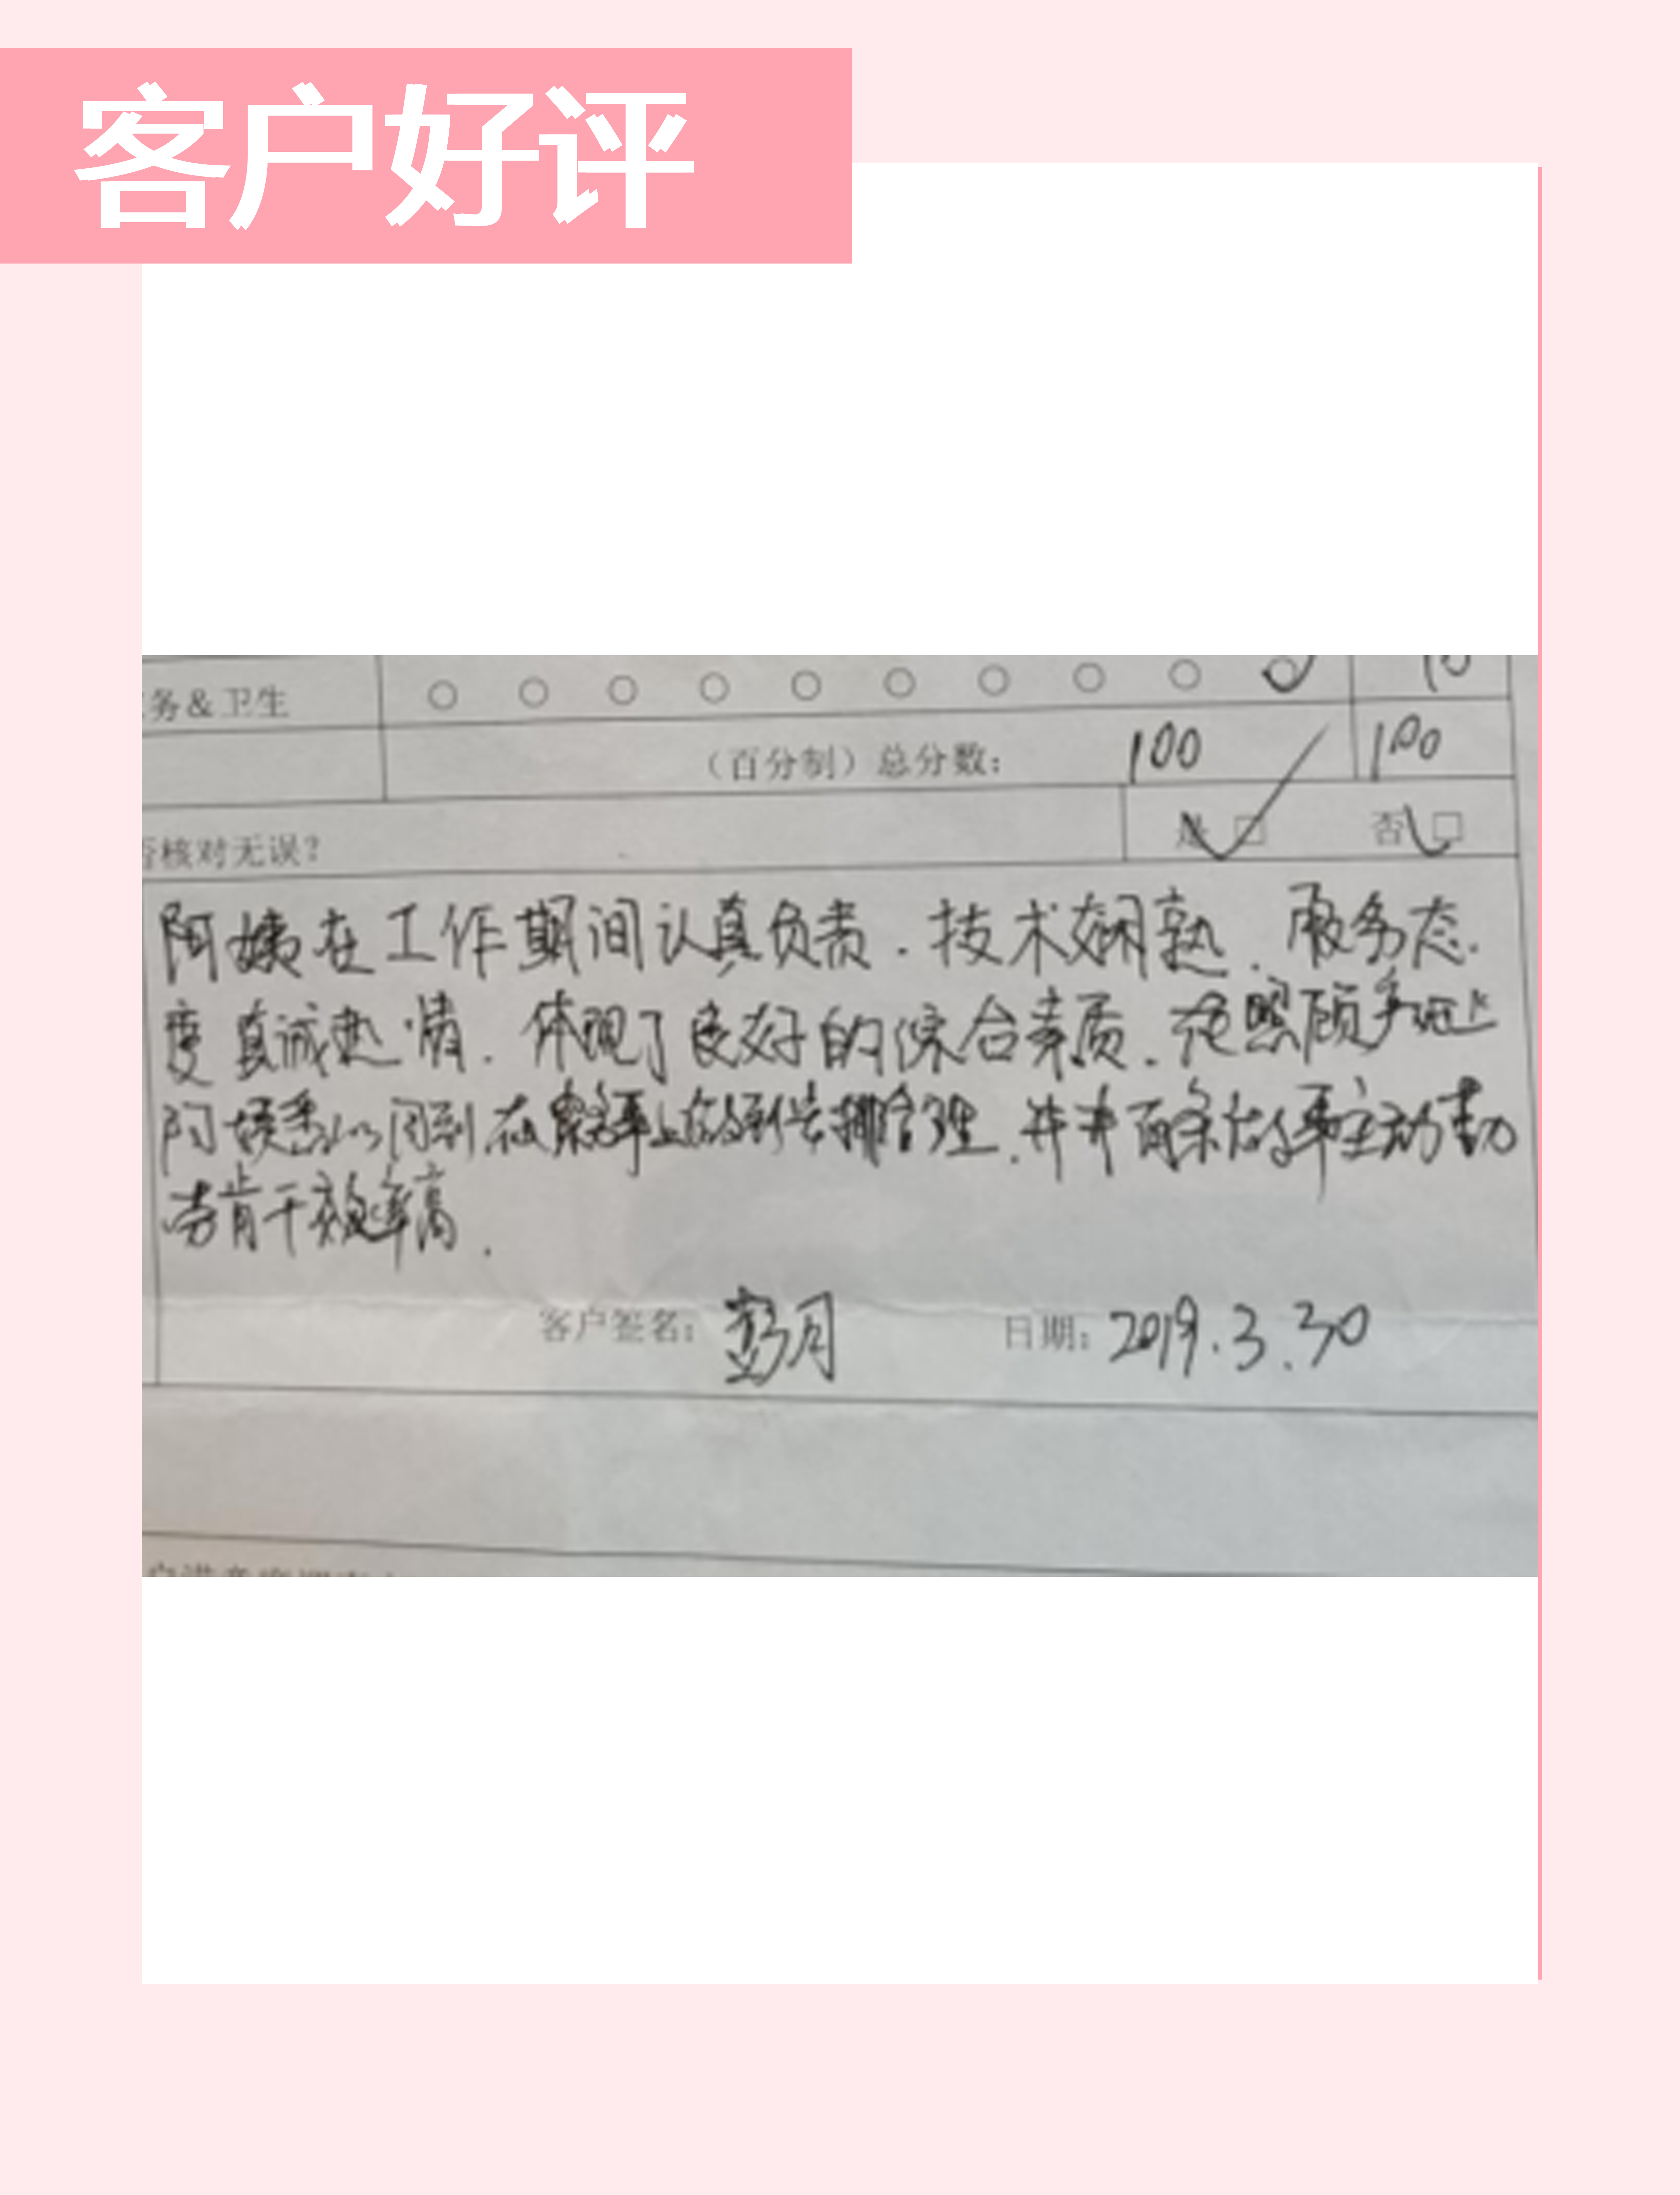 客户好评
务&卫生 10
(百分制)总分数: 100 100
否核对无误? 是 □ 否 □
阿姨在工作期间认真负责.技术娴熟.服务态
度真诚热情.体现了良好的综合素质.在照顾
阿姨悉心周到.在 上 到 排合理.井井有条 主动勤
劳肯干效率高.
客户签名: 彭月 日期: 2019.3.30